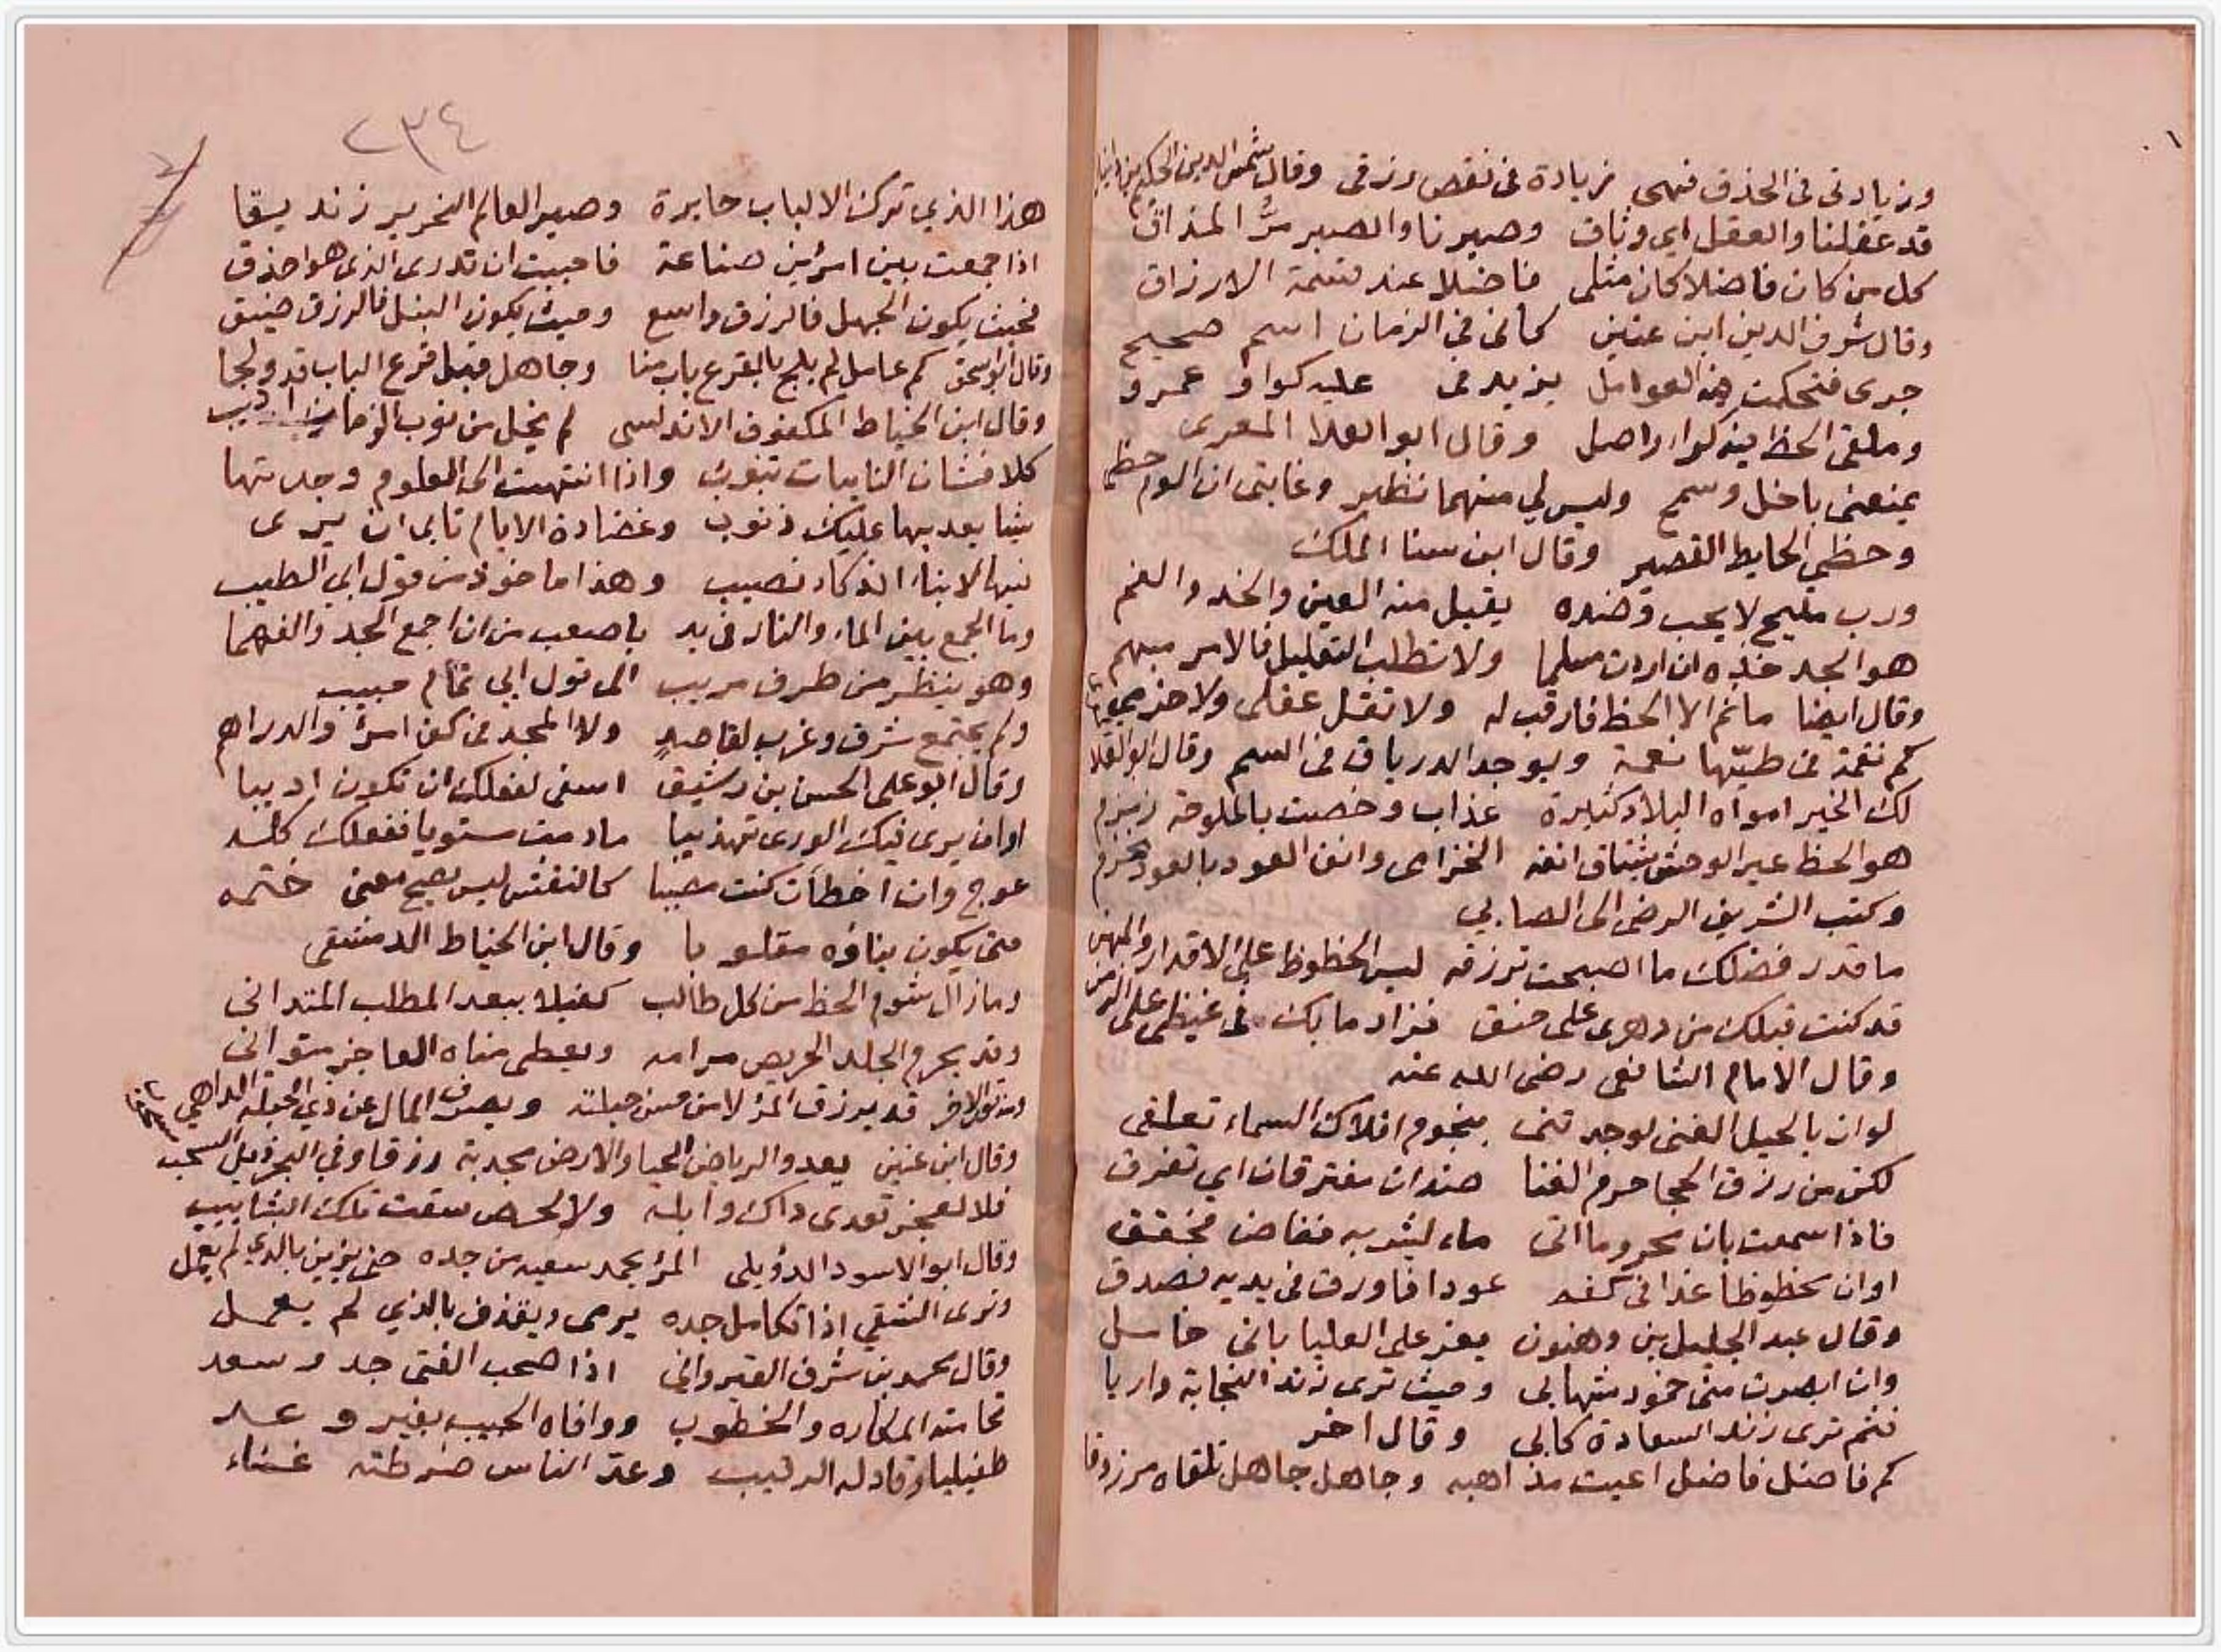 وزيادتى فى الحذق فهى زيادة فى نقص رزقى وقال شمس الدين الحكيم بن دانيال
قد عقلنا والعقل اي وثاق وصبرنا والصبر مرُّ المذاق
كل من كان فاضلا كان مثلى فاضلا عند قسمة الارزاق
وقال شرف الدين ابن عنين كأنى فى الزمان اسم صحيح
جرى فتحكمت فيه العوامل يزيد فى عليه كواو عمرو
وملقى الحظ فيه كراء واصل وقال ابو العلا المعرى
وليس لي منهما نظير وغايتى ان الوم حظى
وحظي الحايط القصير وقال ابن سنا الملك
ورب مليح لا يحب وضده يقبل منه العين والخد والفم
هو الجد خذه ان اردت مسلما ولا تطلب التعليل فالامر مبهم
وقال ايضا ما ثم الا الحظ فارقب له ولا تقل عقلى ولا حزمي
كم نقمة فى طيّها نعمة ويوجد الدرياق فى السم وقال ابو العلا
لك الخير امواه البلاد كثيرة عذاب وخصت بالملوحة زمزم
هو الحظ عير الوحش يشتاق انفه الخزامى وانف العود بالعود يخزم
وكتب الشريف الرضى الى الصابي
ما قدر فضلك ما اصبحت ترزقه ليس الحظوظ على الاقدار والمهن
قد كنت قبلك من دهرى على حنق فزاد ما بك فى غيظى على الزمن
وقال الامام الشافعى رضى الله عنه
لو ان بالحيل الغنى لوجدتنى بنجوم افلاك السماء تعلقى
لكن من رزق الحجا حرم الغنا ضدان مفترقان اي تفرق
فاذا سمعت بان محروما اتى ماء ليشربه فغاض فحقق
او ان محظوظا غدا فى كفه عودا فاورق فى يديه فصدق
وقال عبد الجليل بن وهبون يعز على العليا بانى خامل
وان ابصرت منى خمود شهابى وحيث ترى زند النجابة واريا
فثم ترى زند السعادة كابى وقال اخر
كم فاضل فاضل اعيت مذاهبه وجاهل جاهل تلقاه مرزوقا
٢٣٤
هذا الذي ترك الالباب حايرة وصير العالم النحرير زنديقا
اذا جمعت بين امرئين صناعة فاحببت ان تدرى الذى هو احذق
فحيث يكون الجهل فالرزق واسع وحيث يكون النبل فالرزق ضيق
وقال ابو اسحق كم عامل لم يلج بالقرع باب منا وجاهل قبل قرع الباب قد ولجا
وقال ابن الخياط المكفوف الاندلسى لم يخل من نوب الزمان اديب
كلا فشان النايبات تنوب واذا انتهيت الى العلوم وجدتها
شيا يعد بها عليك ذنوب وغضارة الايام تابى ان يرى
فيها لابناء الذكاء نصيب وهذا ماخوذ من قول ابي الطيب
وما الجمع بين الماء والنار فى يد باصعب من ان اجمع الجد والفهما
وهو ينظر من طرف مريب الى قول ابي تمام حبيب
ولم يجتمع شرق وغرب لقاصدٍ ولا المجد فى كف امرئ والدراهم
وقال ابو على الحسن بن رشيق اسفى لفعلك ان تكون اديبا
او ان يرى فيك الورى تهذيبا ما دمت مستويا ففعلك كله
عوج وان اخطات كنت مصيبا كالنقش ليس يصح معنى ختمه
حتى يكون بناؤه مقلوبا وقال ابن الخياط الدمشقى
وما زال شوم الحظ من كل طالب كفيلا ببعد المطلب المتدانى
وقد يحرم الجلد الحريص مرامه ويعطى مناه العاجز متوانى
قد يرزق المرؤ لا من حسن حيلته ويصرف المال عن ذي الحيلة الداهي
وقال ابن عنين يعدو الرياض الحيا والارض مجدبة رزقا وفي البحر ذيل السحب
فلا لعجز تعدى ذاك وابله ولا لحرص سقت تلك الشابيب
وقال ابو الاسود الدؤيلى المرؤ يحمد سعيه من جده حتى يزين بالذي لم يعمل
وترى الشقي اذا تكامل جده يرمى ويقذف بالذي لم يعمل
وقال محمد بن شرف القيروانى اذا صحب الفتى جد وسعد
تحامته المكاره والخطوب ووافاه الحبيب بغير وعد
طفيليا وقاد له الرقيب وعد الناس ضرطته غناء